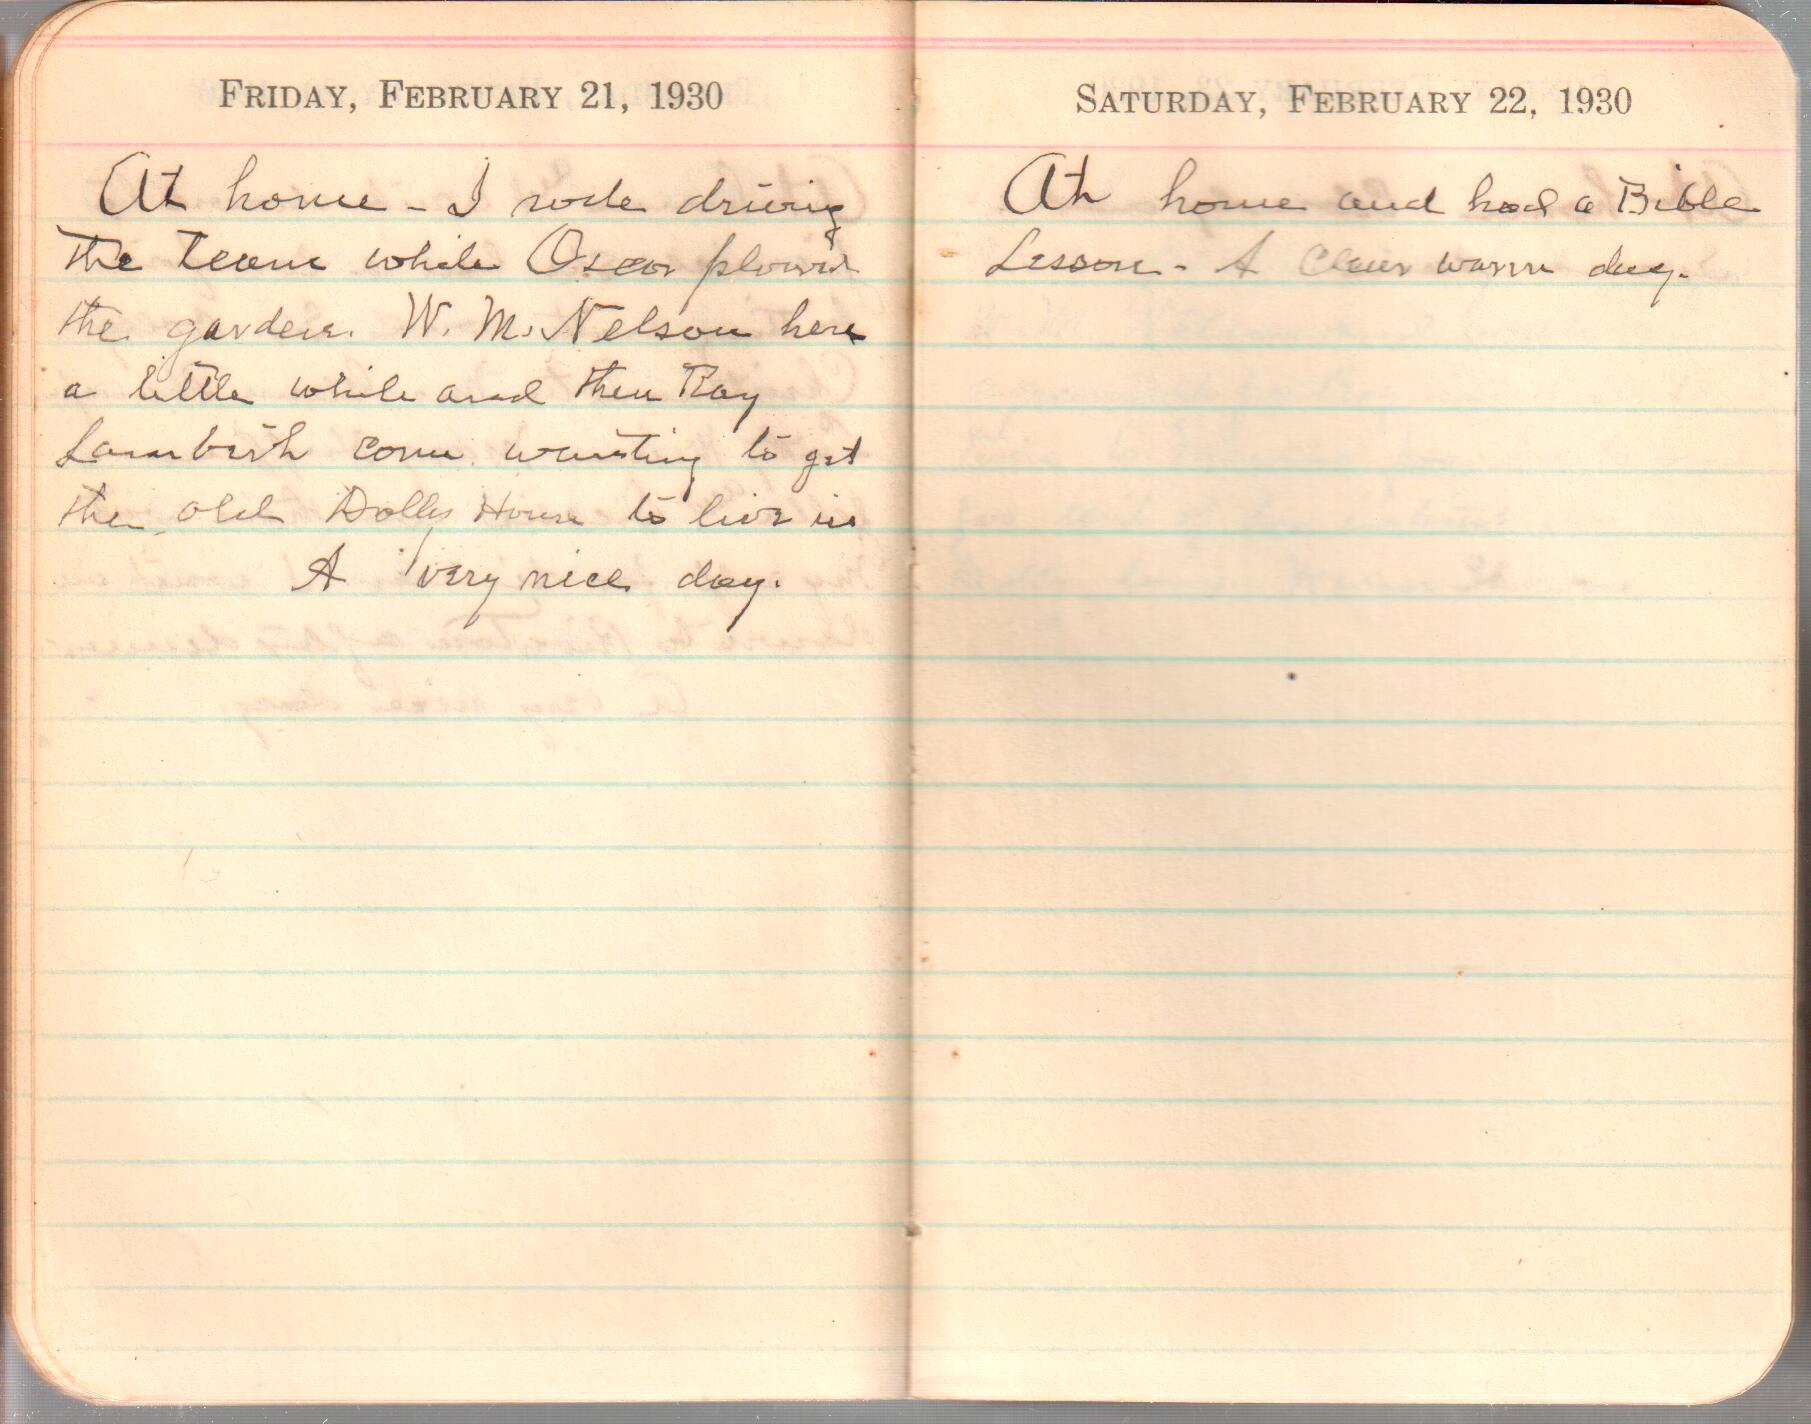 FRIDAY, FEBRUARY 21, 1930
At home - I rode driving
the team while Oscar plowed
the garden. W. M. Nelson here
a little while and then Ray
come wanting to get
the old Dolly House to live in
A very nice day.
SATURDAY, FEBRUARY 22, 1930
At home and had a Bible
Lesson - A Clear warm day.